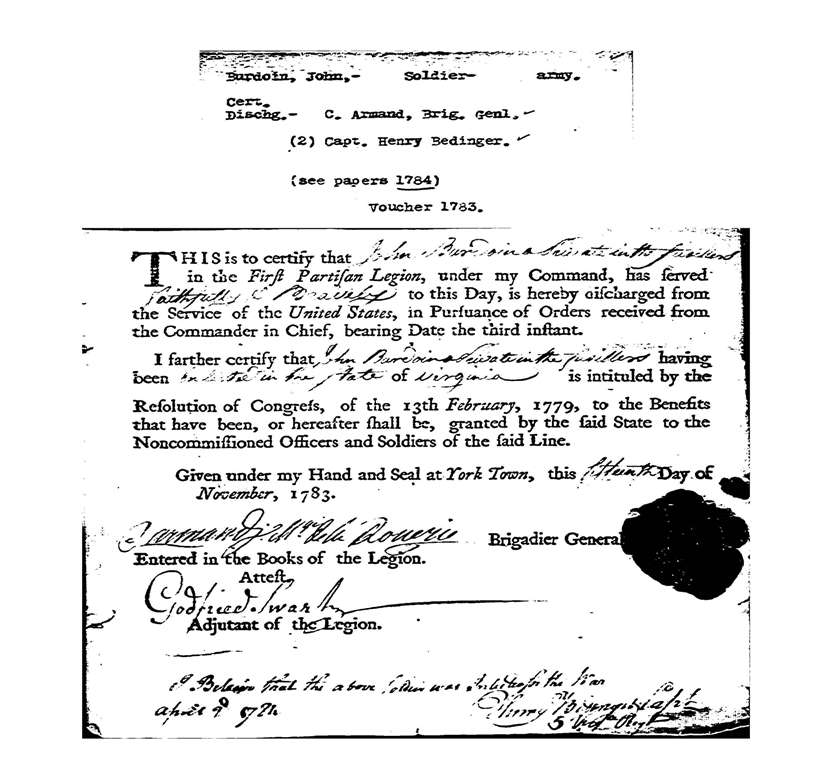 Burdoin, John,- Soldier- army.
Cert.
Dischg.- C. Armand, Brig. Genl.
(2) Capt. Henry Bedinger.
(see papers 1784)
Voucher 1783.
THIS is to certify that John Burdoin a Private in the fusiliers
in the Firſt Partiſan Legion, under my Command, has ſerved
Faithfully & Bravely to this Day, is hereby diſcharged from
the Service of the United States, in Purſuance of Orders received from
the Commander in Chief, bearing Date the third inſtant.
I farther certify that John Burdoin a Private in the fusillers having
been in the State of Virginia is intituled by the
Reſolution of Congreſs, of the 13th February, 1779, to the Benefits
that have been, or hereafter ſhall be, granted by the ſaid State to the
Noncommiſſioned Officers and Soldiers of the ſaid Line.
Given under my Hand and Seal at York Town, this fifteenth Day of
November, 1783.
armand Mqs de la Rouerie Brigadier General
Entered in the Books of the Legion.
Atteſt,
Godfried Swartz
Adjutant of the Legion.
I Believe that the above Soldier was Inlisted for the War
April 9th 1784 Henry Capt
5